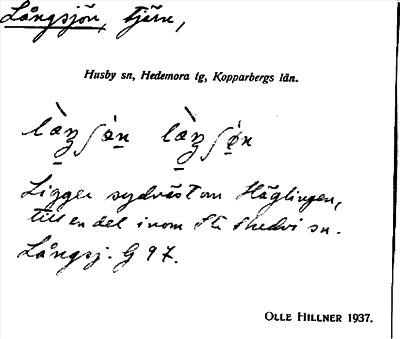 Långsjön, tjärn,
Husby sn, Hedemora tg, Kopparbergs län.
Ligger sydväst om Häglingen,
till en del inom St. Skedvi sn.
Långsj. G 97.
OLLE HILLNER 1937.